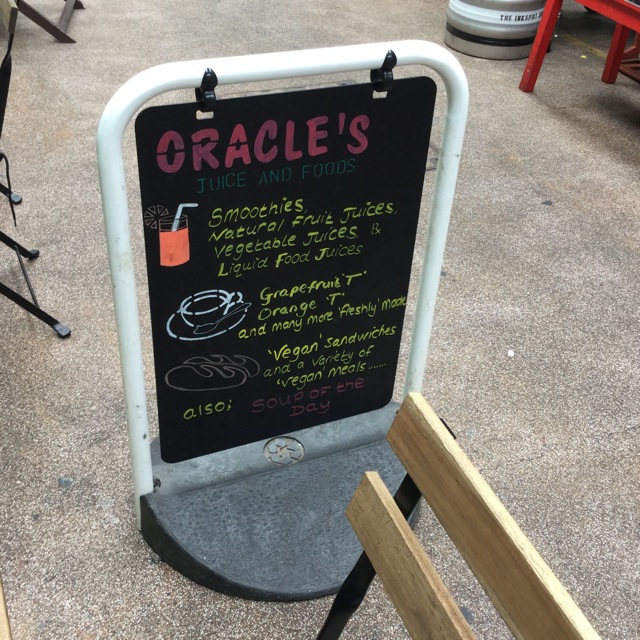 THE INKSPOT
ORACLE'S
JUICE AND FOODS
Smoothies,
Natural Fruit Juices,
Vegetable Juices, &
Liquid Food Juices
Grapefruit 'T'
Orange 'T'
and many more 'freshly' made
'Vegan' sandwiches
and a variety of
'vegan' meals......
also; Soup of the
Day